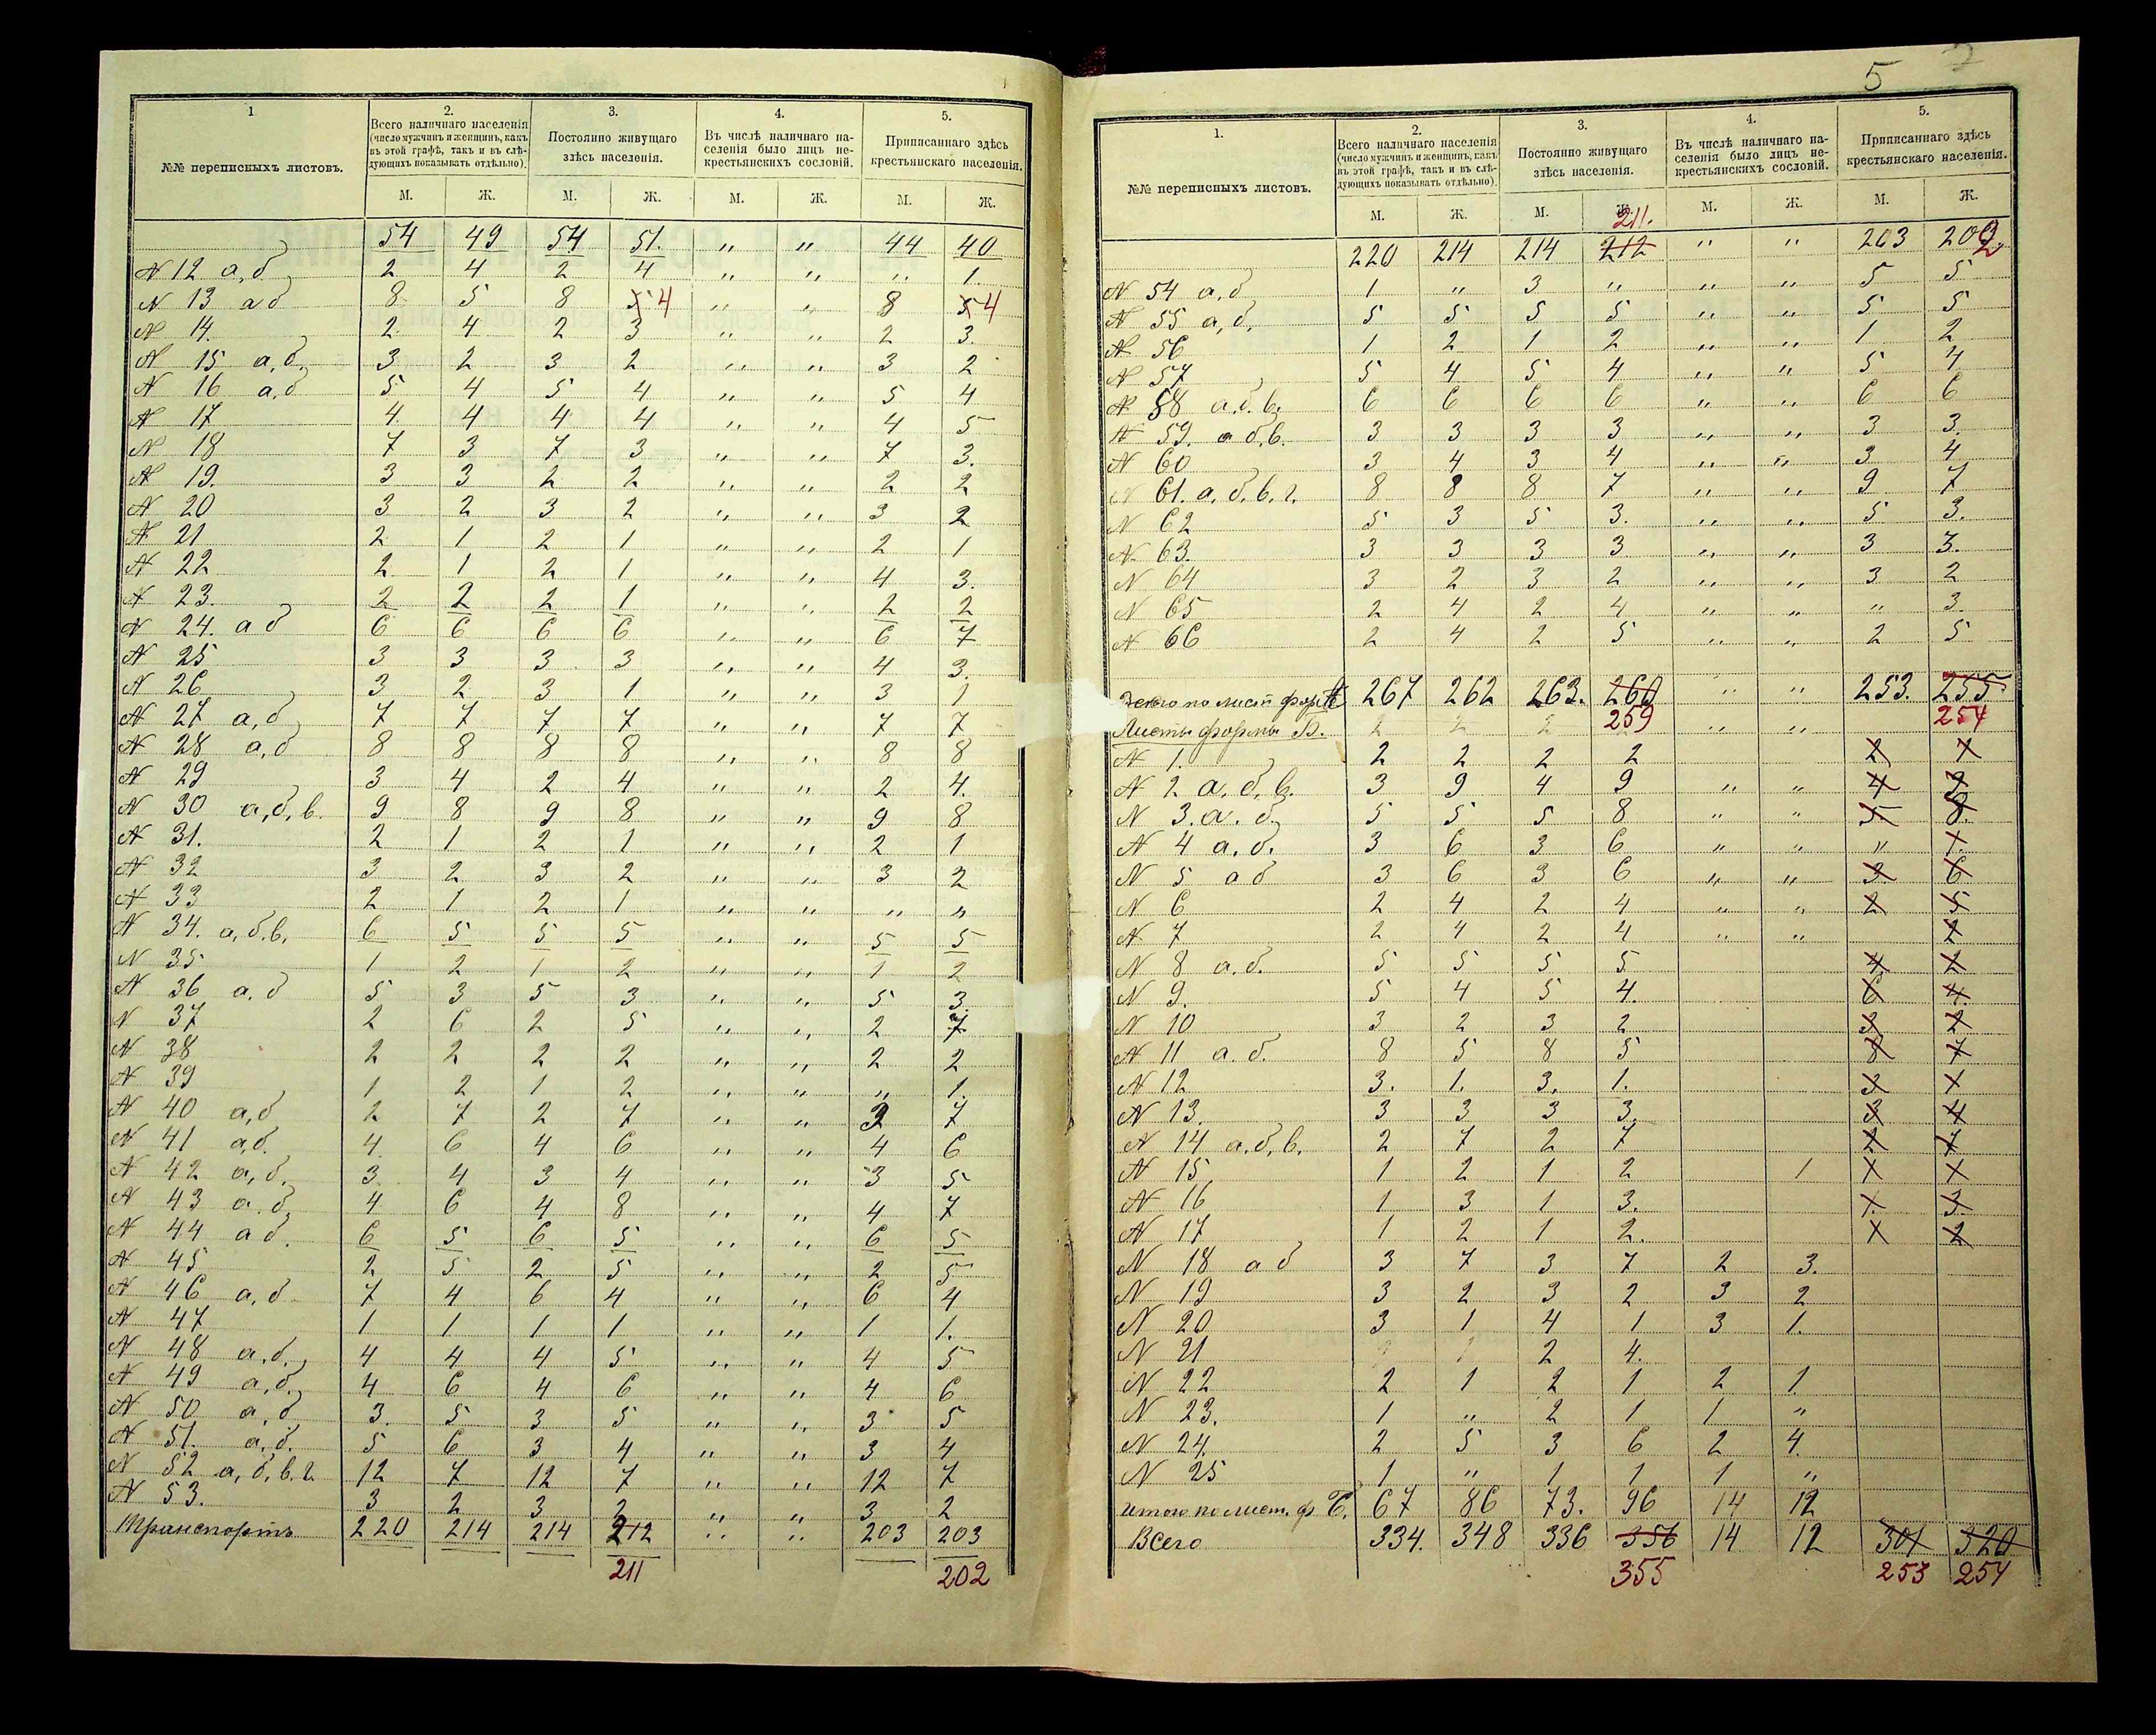 1
№№ переписныхъ листовъ.
2.
Всего наличнаго населенія
(число мужчинъ и женщинъ, какъ
въ этой графѣ, такъ и въ слѣ-
дующихъ показывать отдѣльно).
3.
Постоянно живущаго
здѣсь населенія.
4.
Въ числѣ наличнаго на-
селенія было лицъ не-
крестьянскихъ сословій.
5.
Приписаннаго здѣсь
крестьянскаго населенія.
М. Ж. М. Ж. М. Ж. М. Ж.
54 49 54 51. " " 44 40
N 12 а, б 2 4 2 4 " " " 1.
N 13 а б 8 5 8 5 4 " " 8 5 4
N 14. 2. 4 2 3 " " 2 3.
N 15 а, б, 3 2 3 2 " " 3 2
N 16 а, б 5 4 5 4 " " 5 4
N 17 4 4 4 4 " " 4 5
N 18 7 3 7 3 " " 7 3.
N 19. 3 3 2 2 " " 2 2
N 20 3 2 3 2 " " 3 2
N 21 2 1 2 1 " " 2 1
N 22 2 1 2 1 " " 4 3.
N 23. 2 2 2 1 " " 2 2
N 24. а б 6 6 6 6 " " 6 7
N 25 3 3 3 3 " " 4 3.
N 26 3 2 3 1 " " 3 1
N 27 а, б 7 7 7 7 " " 7 7
N 28 а, б 8 8 8 8 " " 8 8
N 29 3 4 2 4 " " 2 4.
N 30 а, б, в. 9 8 9 8 " " 9 8
N 31. 2 1 2 1 " " 2 1
N 32 3 2 3 2 " " 3 2
N 33 2 1 2 1 " " " "
N 34. а, б. в. 6 5 5 5 " " 5 5
N 35 1 2 1 2 " " 1 2
N 36 а, б 5 3 5 3 " " 5 3.
N 37 2 6 2 5 " " 2 7
N 38 2 2 2 2 " " 2 2
N 39 1 2 1 2 " " " 1.
N 40 а, б 2 7 2 7 " " 2 7
N 41 а, б. 4 6 4 6 " " 4 6
N 42 а, б. 3 4 3 4 " " 3 5
N 43 а. б, 4 6 4 8 " " 4 7
N 44 а б. 6 5 6 5 " " 6 5
N 45 2 5 2 5 " " 2 5
N 46 а, б 7 4 6 4 " " 6 4
N 47 1 1 1 1 " " 1 1.
N 48 а, б. 4 4 4 5 " " 4 5
N 49 а, б. 4 6 4 6 " " 4 6
N 50 а, б 3. 5 3 5 " " 3 5
N 51. а, б. 5 6 3 4 " " 3 4
N 52 а, б, в. г. 12 7 12 7 " " 12 7
N 53. 3 2 3 2 " " 3 2
Транспортъ 220 214 214 212 " " 203 203
211 202
5
1.
№№ переписныхъ листовъ.
2.
Всего наличнаго населенія
(число мужчинъ и женщинъ, какъ
въ этой графѣ, такъ и въ слѣ-
дующихъ показывать отдѣльно).
3.
Постоянно живущаго
здѣсь населенія.
4.
Въ числѣ наличнаго на-
селенія было лицъ не-
крестьянскихъ сословій.
5.
Приписаннаго здѣсь
крестьянскаго населенія.
М. Ж. М. Ж. М. Ж. М. Ж.
211.
220 214 214 212 " " 203 202
N 54 а, б 1 " 3 " " " 5 5
N 55 а, б, 5 5 5 5 " " 5 5
N 56 1 2 1 2 " " 1 2
N 57 5 4 5 4 " " 5 4
N 58 а. б. в. 6 6 6 6 " " 6 6
N 59. а б. в. 3 3 3 3 " " 3 3.
N 60 3 4 3 4 " " 3 4
N 61. а, б, в. г. 8 8 8 7 " " 9 7
N 62 5 3 5 3. " " 5 3.
N 63. 3 3 3 3 " " 3 3.
N 64 3 2 3 2 " " 3 2
N 65 2 4 2 4 " " " 3.
N 66 2 4 2 5 " " 2 5
267 262 263. 260 " " 253. 255
Листы формы Б. 2 2 2 259 " " 254
N 1. 2 2 2 2 2 1
N 2 а, б, в. 3 9 4 9 " " 4 2
N 3. а. б. 5 5 5 8 " " 5 8.
N 4 а, б. 3 6 3 6 " " " 1.
N 5 а б 3 6 3 6 " " 3. 6
N 6 2 4 2 4 " " 2 5
N 7 2 4 2 4 " " 2
N 8 а. б. 5 5 5 5 4 2
N 9. 5 4 5 4. 6 4.
N 10 3 2 3 2 3 2
N 11 а. б. 8 5 8 5 8 7
N 12 3. 1. 3. 1. 3 1
N 13. 3 3 3 3. 3 4
N 14 а. б, в. 2 7 2 7 2 7
N 15 1 2 1 2 1 1 1
N 16 1 3 1 3. 1. 3.
N 17 1 2 1 2. 1 2
N 18 а б 3 7 3 7 2 3.
N 19 3 2 3 2 3 2
N 20 3 1 4 1 3 1.
N 21 2 4.
N 22 2 1 2 1 2 1
N 23. 1 " 2 1 1 "
N 24. 2 5 3 6 2 4.
N 25 1 " 1 1 1 "
итого по лист. ф. Б. 67 86 73. 96 14 12
Всего 334. 348 336 356 14 12 301 320
355 253 254